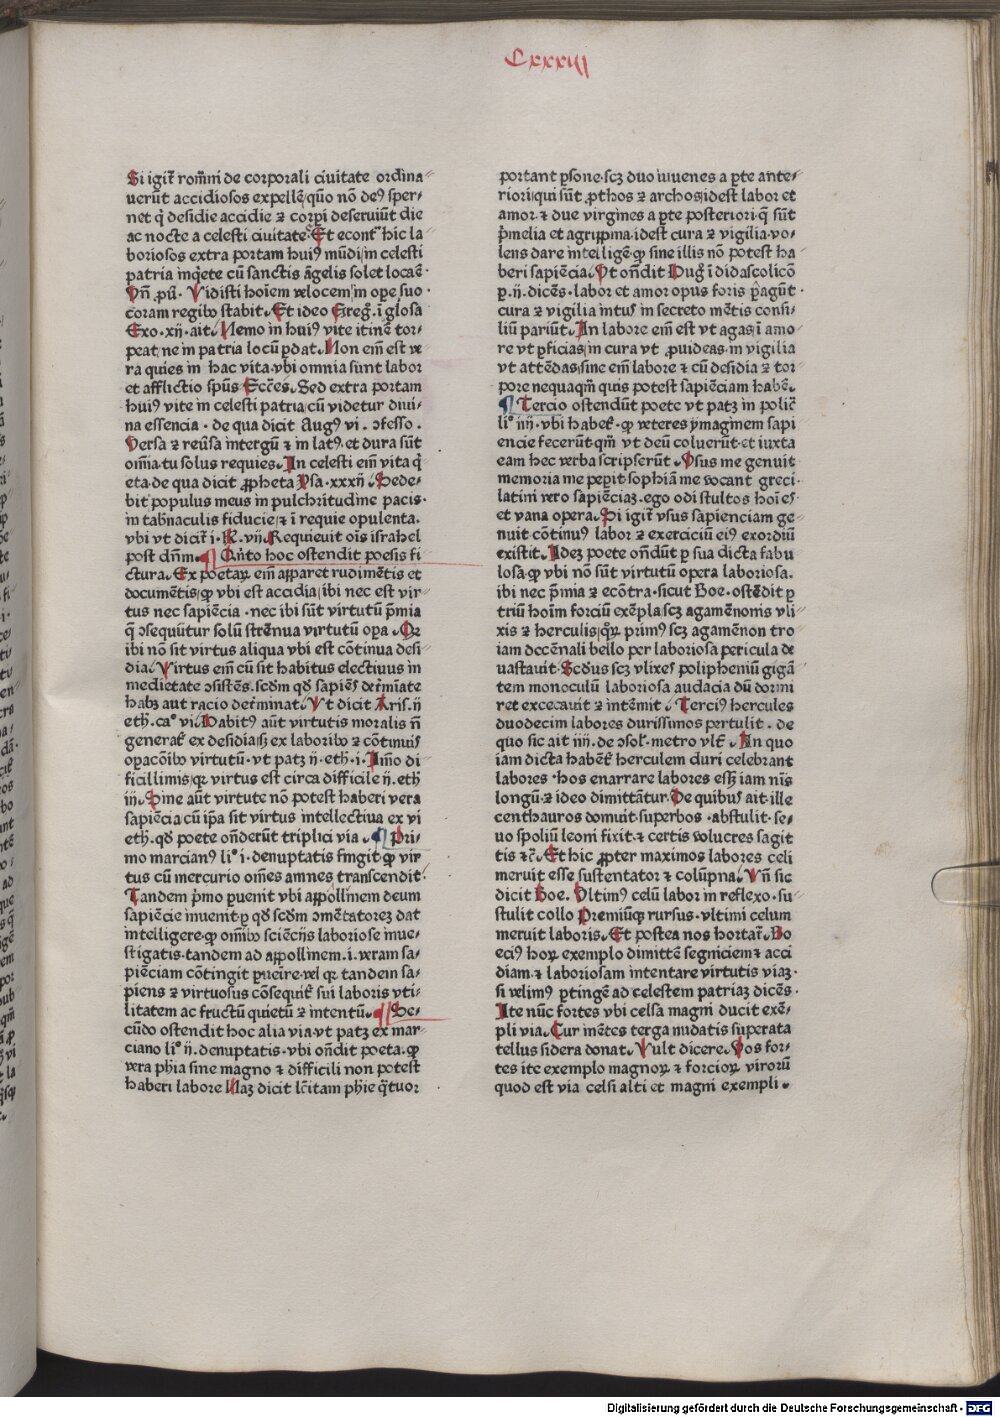 Cxxxiij
Si igit᷑ rom̄ni de corporali ciuitate ordina⸗
uerūt accidiosos expelle᷑/quō nō deꝰ sper⸗
net q̇ desidie accidie ⁊ corꝑi deseruiūt die
ac nocte a celesti ciuitate. Et econt᷑ hic la⸗
boriosos extra portam huiꝰ mūdi/in celesti
patria inq̇ete cū sanctis āgelis solet locae᷑.
Vn̄ ꝓū. Vidisti hoīem velocem/in oꝑe suo.
coram regibꝫ stabit. Et ideo Greg᷑. ī glosa
Exo.xij.ait. Nemo in huiꝰ vite itine᷑ tor⸗
peat/ne in patria locū ꝑdat. Non em̄ est ve
ra quies in hac vita.vbi omnia sunt labor
et afflictio spūs Eccēs. Sed extra portam
huiꝰ vite in celesti patria/cū videtur diui⸗
na essencia. de qua dicit Augꝰ vi. ꝯfesso.
Versa ⁊ reūsa in tergū ⁊ in latꝰ.et dura sūt
om̄ia.tu solus requies. In celesti em̄ vita q̇
eta.de qua dicit ꝓpheta Psa.xxxij. Sede⸗
bit populus meus in pulchritudine pacis.
in tab̄naculis fiducie/⁊ ī requie opulenta.
vbi vt dicit᷑ i. Re. vij. Requieuit oīs israhel
post dn̄m. ¶ Qn̄to hoc ostendit poesis fi⸗
ctura. Ex poetaꝝ em̄ apparet rudimētis et
documētis/ꝙ vbi est accidia/ibi nec est vir⸗
tus nec sapiēcia.nec ibi sūt virtutū p̄mia
q̄ ꝯsequūtur solū strēnua virtutū oꝑa. Qꝛ
ibi nō sit virtus aliqua vbi est cōtinua desi⸗
dia. Virtus em̄ cū sit habitus electiuus in
medietate ꝯsistēs.scdm qd̄ sapiēs det᷑miate
habꝫ aut racio det᷑minat. Vt dicit Aris. ij
eth. caº vi. Habitꝰ aūt virtutis moralis n̄
generat᷑ ex desidia/sꝫ ex laboribꝫ ⁊ cōtinuis
oꝑacōibꝫ virtutū.vt patꝫ ij.eth.i. Immo di⸗
ficillimis/qꝛ virtus est circa difficile ij. eth
iij. Sine aūt virtute nō potest haberi vera
sapiēcia cū ip̄a sit virtus intellectiua ex vi
eth. qd̄ poete on̄derūt triplici via. ¶ Pri⸗
mo marcianꝰ liº i.de nuptatis fingit ꝙ vir⸗
tus cū mercurio om̄es amnes transcendit.
Tandem p̄mo ꝑuenit vbi appollinem deum
sapiēcie inuenit ꝑ qd̄ scdm ꝯmētatorez dat
intelligere.ꝙ om̄ibꝫ sciēcijs laboriose inue⸗
stigatis.tandem ad appollinem.i.veram sa⸗
piēciam cōtingit ꝑueire.vel qꝛ tandem sa⸗
piens ⁊ virtuosus cōsequit᷑ sui laboris vti⸗
litatem ac fructū quietū ⁊ intentū. ¶ Se⸗
cūdo ostendit hoc alia via.vt patꝫ ex mar⸗
ciano liº ij.de nuptatis.vbi on̄dit poeta.ꝙ
vera phia sine magno ⁊ difficili non potest
haberi labore Naꝫ dicit lc̄itam phie q̄tuor
portant ꝑsone.scꝫ duo iuuenes a ꝑte ante⸗
riori/qui sūt ꝓthos ⁊ archos/idest labor et
amor.⁊ due virgines a ꝑte posteriori q̄ sūt
p̄melia et agrippma.idest cura ⁊ vigilia.vo⸗
lens dare intellige᷑ ꝙ sine illis nō potest ha
beri sapiēcia. Vt on̄dit Hug᷑ ī didascolicō
ꝑ. ij. dicēs.labor et amor opus foris ꝑagūt.
cura ⁊ vigilia intus in secreto mētis consi⸗
liū pariūt. In labore em̄ est vt agas/ī amo
re vt ꝑficias/in cura vt ꝓuideas.in vigilia
vt attēdas/sine em̄ labore ⁊ cū desidia ⁊ tor⸗
pore nequaqm̄ quis potest sapiēciam habe᷑.
¶ Tercio ostendūt poete vt patꝫ in polic᷑
liº iij.vbi habet᷑.ꝙ veteres ymaginem sapi
encie fecerūt.qm̄ vt deū coluerūt.et iuxta
eam hec verba scripserūt. Vsus me genuit
memoria me peꝑit.sophiā me vocant greci.
latini vero sapiēciaꝫ.ego odi stultos hoīes.
et vana opera. Si igit᷑ vsus sapienciam ge⸗
nuit cōtinuꝰ labor ⁊ exerciciū eiꝰ exordiū
existit. Idez poete on̄dūt ꝑ sua dicta fabu
losa.ꝙ vbi nō sūt virtutū opera laboriosa.
ibi nec p̄mia ⁊ ecōtra.sicut Boe. ostēdit ꝑ
triū hoīm forciū exēpla/scꝫ agamēnonis vli⸗
xis ⁊ herculis/qꝝ primꝰ scꝫ agamēnon tro⸗
iam decēnali bello per laboriosa pericula de
uastauit. Scdꝰ scꝫ vlixes polipheniū gigā⸗
tem monoculū laboriosa audacia dū dormi
ret excecauit ⁊ intēmit. Terciꝰ hercules
duodecim labores durissimos pertulit. de
quo sic ait iiij. de ꝯsol. metro vlt᷑. In quo
iam dicta habet᷑ herculem duri celebrant
labores. hos enarrare labores eſſꝫ iam nīs
longū.⁊ ideo dimittātur. De quibus ait ille
centhauros domuit superbos.abstulit.se⸗
uo spoliū leoni fixit.⁊ certis volucres sagit⸗
tis ⁊c̄. Et hic ꝓpter maximos labores celi
meruit esse sustentator ⁊ colūpna. Vn̄ sic
dicit Boe. Vltimꝰ celū labor in reflexo.su⸗
stulit collo Premiūqꝫ rursus.vltimi celum
meruit laboris. Et postea nos hortat᷑. Bo
eciꝰ hoꝝ exemplo dimitte᷑ segniciem ⁊ acci⸗
diam.⁊ laboriosam intentare virtutis viaꝫ.
si velimꝰ ꝑtinge᷑ ad celestem patriaꝫ dicēs.
Ite nūc fortes vbi celsa magni ducit exē⸗
pli via. Cur inētes terga nudatis superata
tellus sidera donat. Vult dicere. Vos for⸗
tes ite exemplo magnoꝝ ⁊ forcioꝝ virorū
quod est via celsi alti et magni exempli.
Digitalisierung gefördert durch die Deutsche Forschungsgemeinschaft - DFG